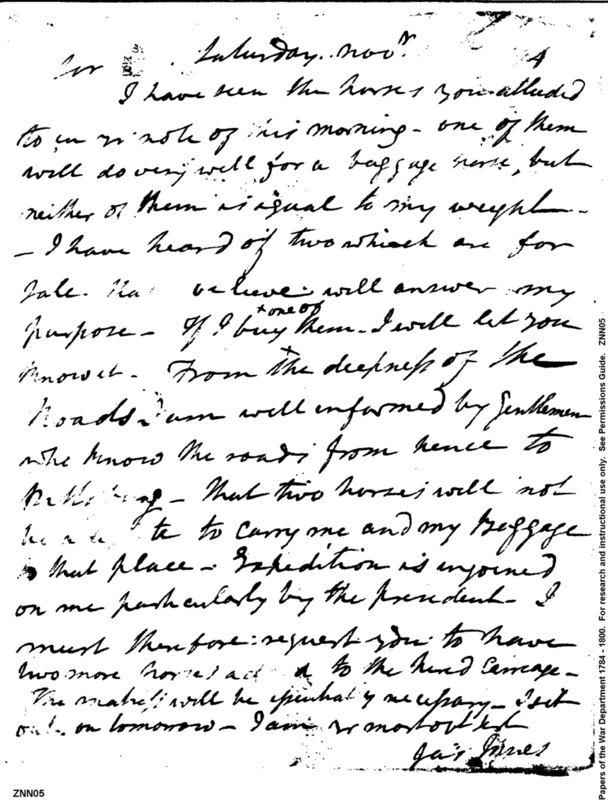 Sir Saturday. Novr. 4
I have seen the horses you alluded
to in yr note of this morning - one of them
will do very well for a baggage horse, but
neither of them is equal to my weight -
- I have heard of two which are for
sale. believe will answer my
purpose - If I buy + one of them - I will let you
know it - From the deepness of the
Roads I am well informed by Gentlemen
who know the roads from hence to
- that two horses will not
be to carry me and my Baggage
to that place - Expedition is injoined
on me particularly by the president - I
must therefore request you to have
two more horses to the hired Carriage -
The will be necessary - I set
out on tomorrow - I am yr most obt
Jas Innes
ZNN05
Papers of the War Department 1784 - 1800. For research and instructional use only. See Permissions Guide. ZNN05